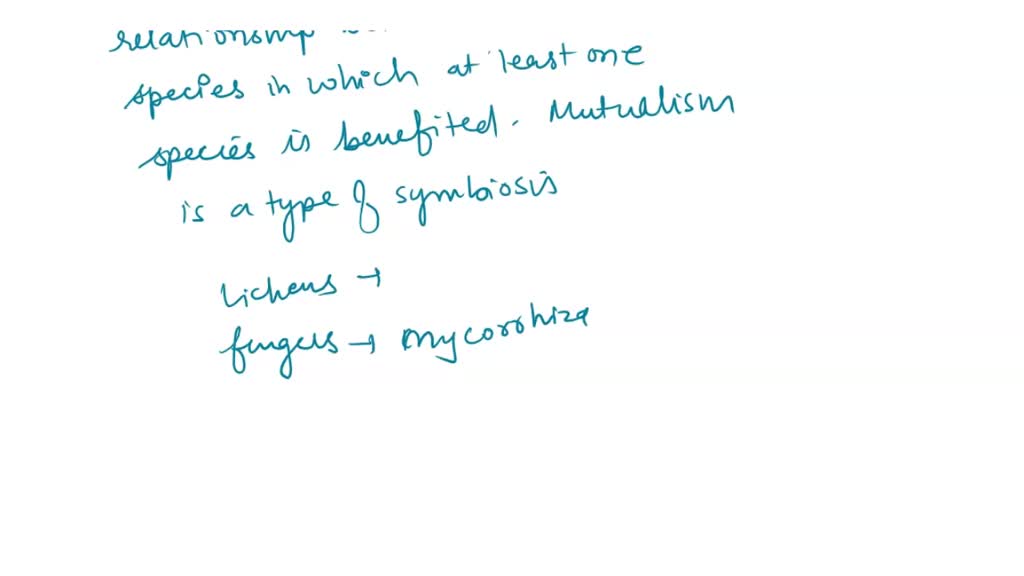 relationship
species in which at least one
species is benefited. Mutualism
is a type of symbiosis
Lichens →
fungus → mycorrhiza